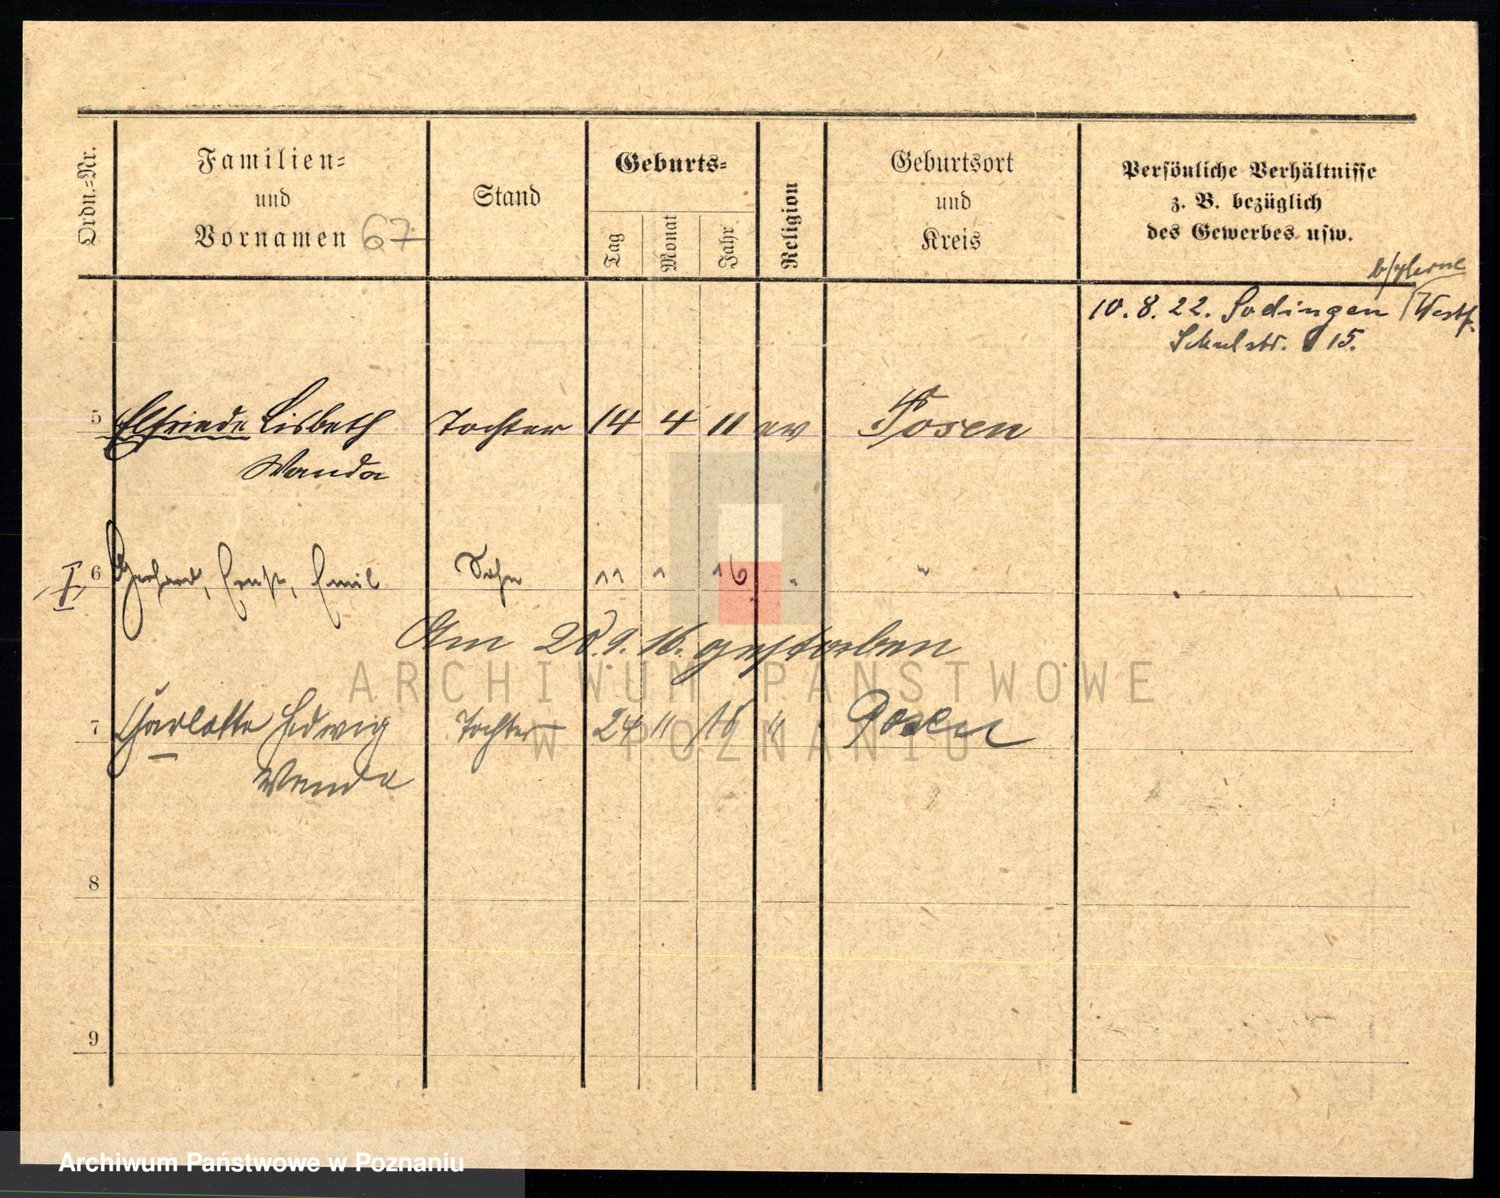 Ordn.=Nr.
Familien=
und
Vornamen 67
Stand
Geburts=
Tag
Monat
Jahr
Religion
Geburtsort
und
Kreis
Persönliche Verhältnisse
z. B. bezüglich
des Gewerbes usw.
10. 8. 22. Sodingen /Westf.
Schulstr. 15.
5 Elfriede Lisbeth Tochter 14 4 11 ev Posen
Wanda
I 6 Gerhard, Ernst, Emil Sohn 11 1 16 " "
Am 28. 9. 16. gestorben
ARCHIWUM PAŃSTWOWE
7 Charlotte Hedwig Tochter 24 11 18 " Posen
W POZNANIU
Wanda
8
9
Archiwum Państwowe w Poznaniu